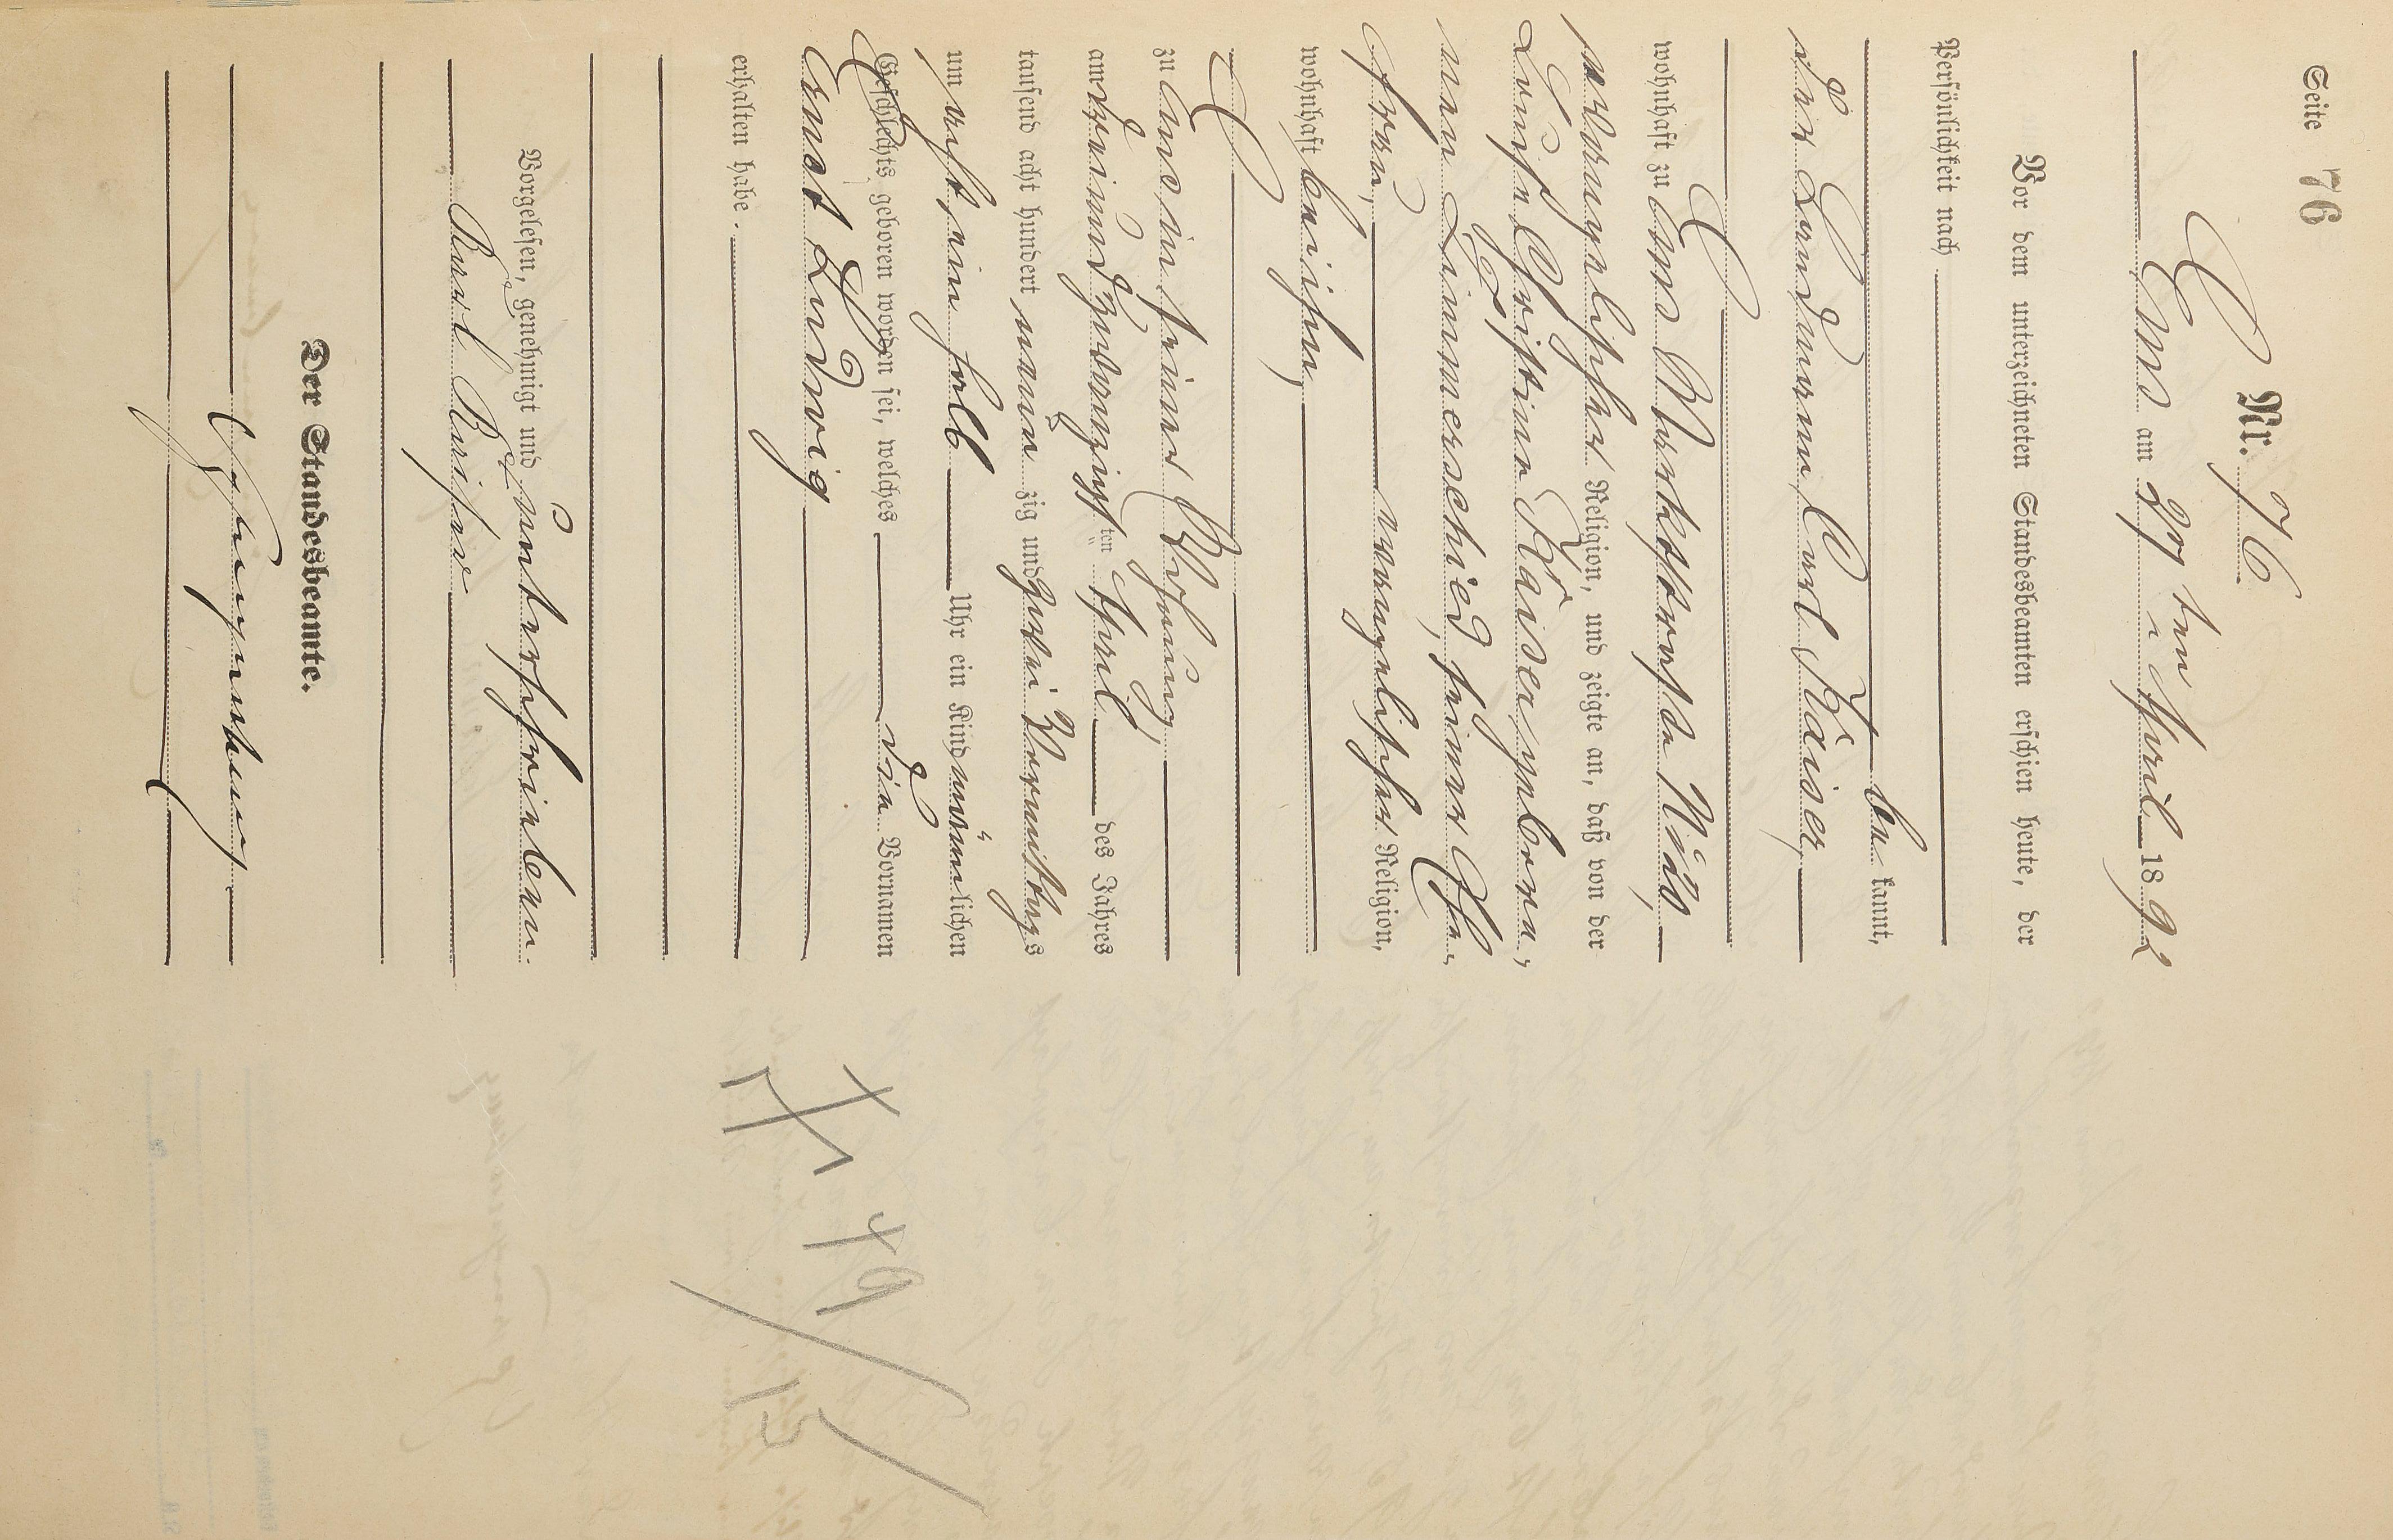 Seite 76
Nr. 76
Ems am 27 ten April 1892
Vor dem unterzeichneten Standesbeamten erschien heute, der
Persönlichkeit nach
be kannt,
der Landmann Carl Kaiser,
wohnhaft zu Ems Marktstraße No 28,
evangelischer Religion, und zeigte an, daß von der
Louise Christine Kaiser, gebore=
nen Limmerschied, seiner Ehe=
frau,
evangelischer Religion,
wohnhaft bei ihm,
zu Ems in seiner Wohnung,
am dreiundzwanzigsten April des Jahres
tausend acht hundert neun zig und zwei Vormittags
um acht ein halb Uhr ein Kind männlichen
Geschlechts geboren worden sei, welches die Vornamen
Ernst Ludwig
erhalten habe.
Vorgelesen, genehmigt und unterschrieben.
Karl Kaiser
Der Standesbeamte.